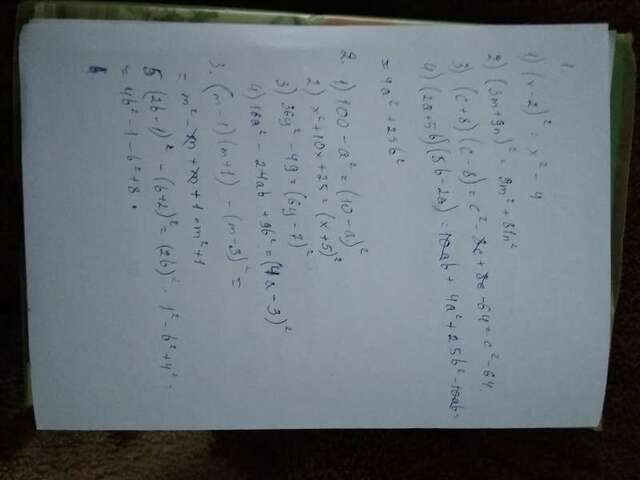 1.
1) (x-2)² = x² - 4
2) (3m+9n)² = 9m² + 81n²
3) (c+8)(c-8) = c² - 8c + 8c - 64 = c² - 64.
4) (2a+5b)(5b-2a) = 10ab + 4a² + 25b² - 10ab =
= 4a² + 25b²
2. 1) 100 - a² = (10-a)²
2) x² + 10x + 25 = (x+5)²
3) 36y² - 49 = (6y-7)²
4) 16a² - 24ab + 9b² = (4a-3)²
3. (m-1)(m+1) - (m-3)² =
= m² - m + m + 1 = m² + 1
(2b-1)² - (b+2)² = (2b)² - 1² - b² + 4² =
= 4b² - 1 - b² + 8.